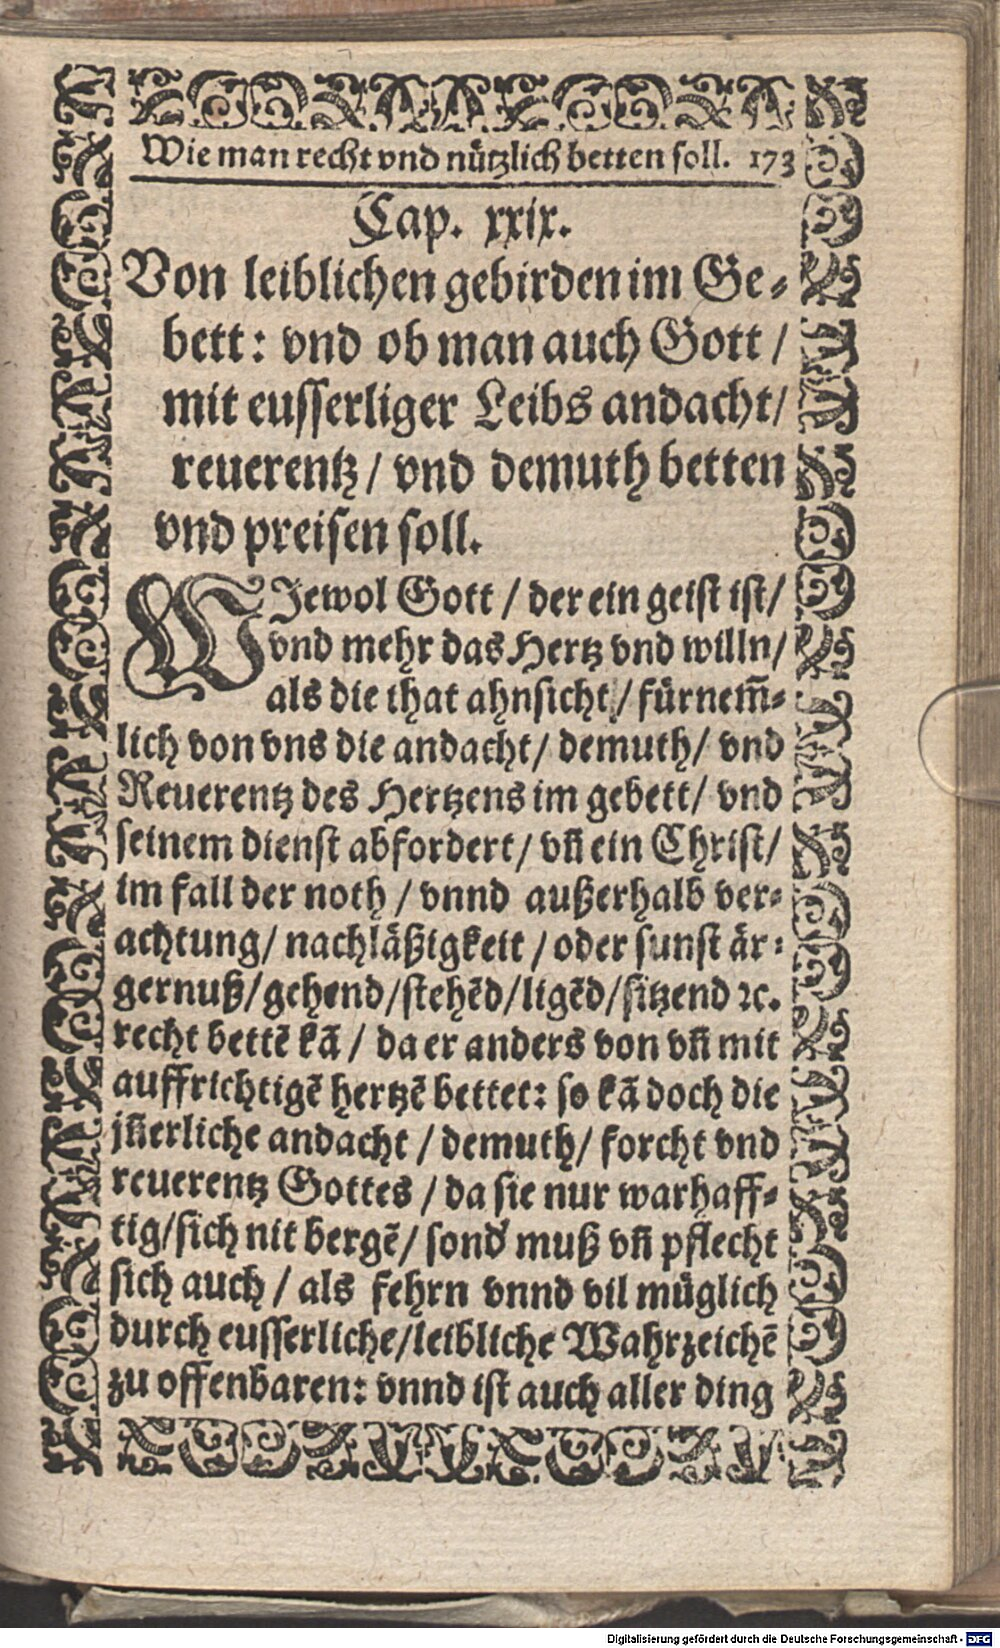 Wie man recht vnd nützlich betten soll. 173
Cap. xxix.
Von leiblichen gebirden im Ge-
bett: vnd ob man auch Gott /
mit eusserliger Leibs andacht/
reuerentz / vnd demuth betten
vnd preisen soll.
WJewol Gott / der ein geist ist/
vnd mehr das Hertz vnd willn/
als die that ahnsicht / fürnem̃-
lich von vns die andacht/ demuth/ vnd
Reuerentz des Hertzens im gebett/ vnd
seinem dienst abfordert/ vñ ein Christ/
im fall der noth / vnnd außerhalb ver-
achtung/ nachläßigkeit / oder sunst är-
gernuß/gehend/stehēd/ligēd/sitzend ꝛc.
recht bettē kā / da er anders von vñ mit
auffrichtigē hertzē bettet: so kā doch die
jñerliche andacht / demuth/ forcht vnd
reuerentz Gottes / da sie nur warhaff-
tig/sich nit bergē/ sond' muß vñ pflecht
sich auch / als fehrn vnnd vil müglich
durch eusserliche/leibliche Wahrzeichē
zu offenbaren: vnnd ist auch aller ding
Digitalisierung gefördert durch die Deutsche Forschungsgemeinschaft - DFG